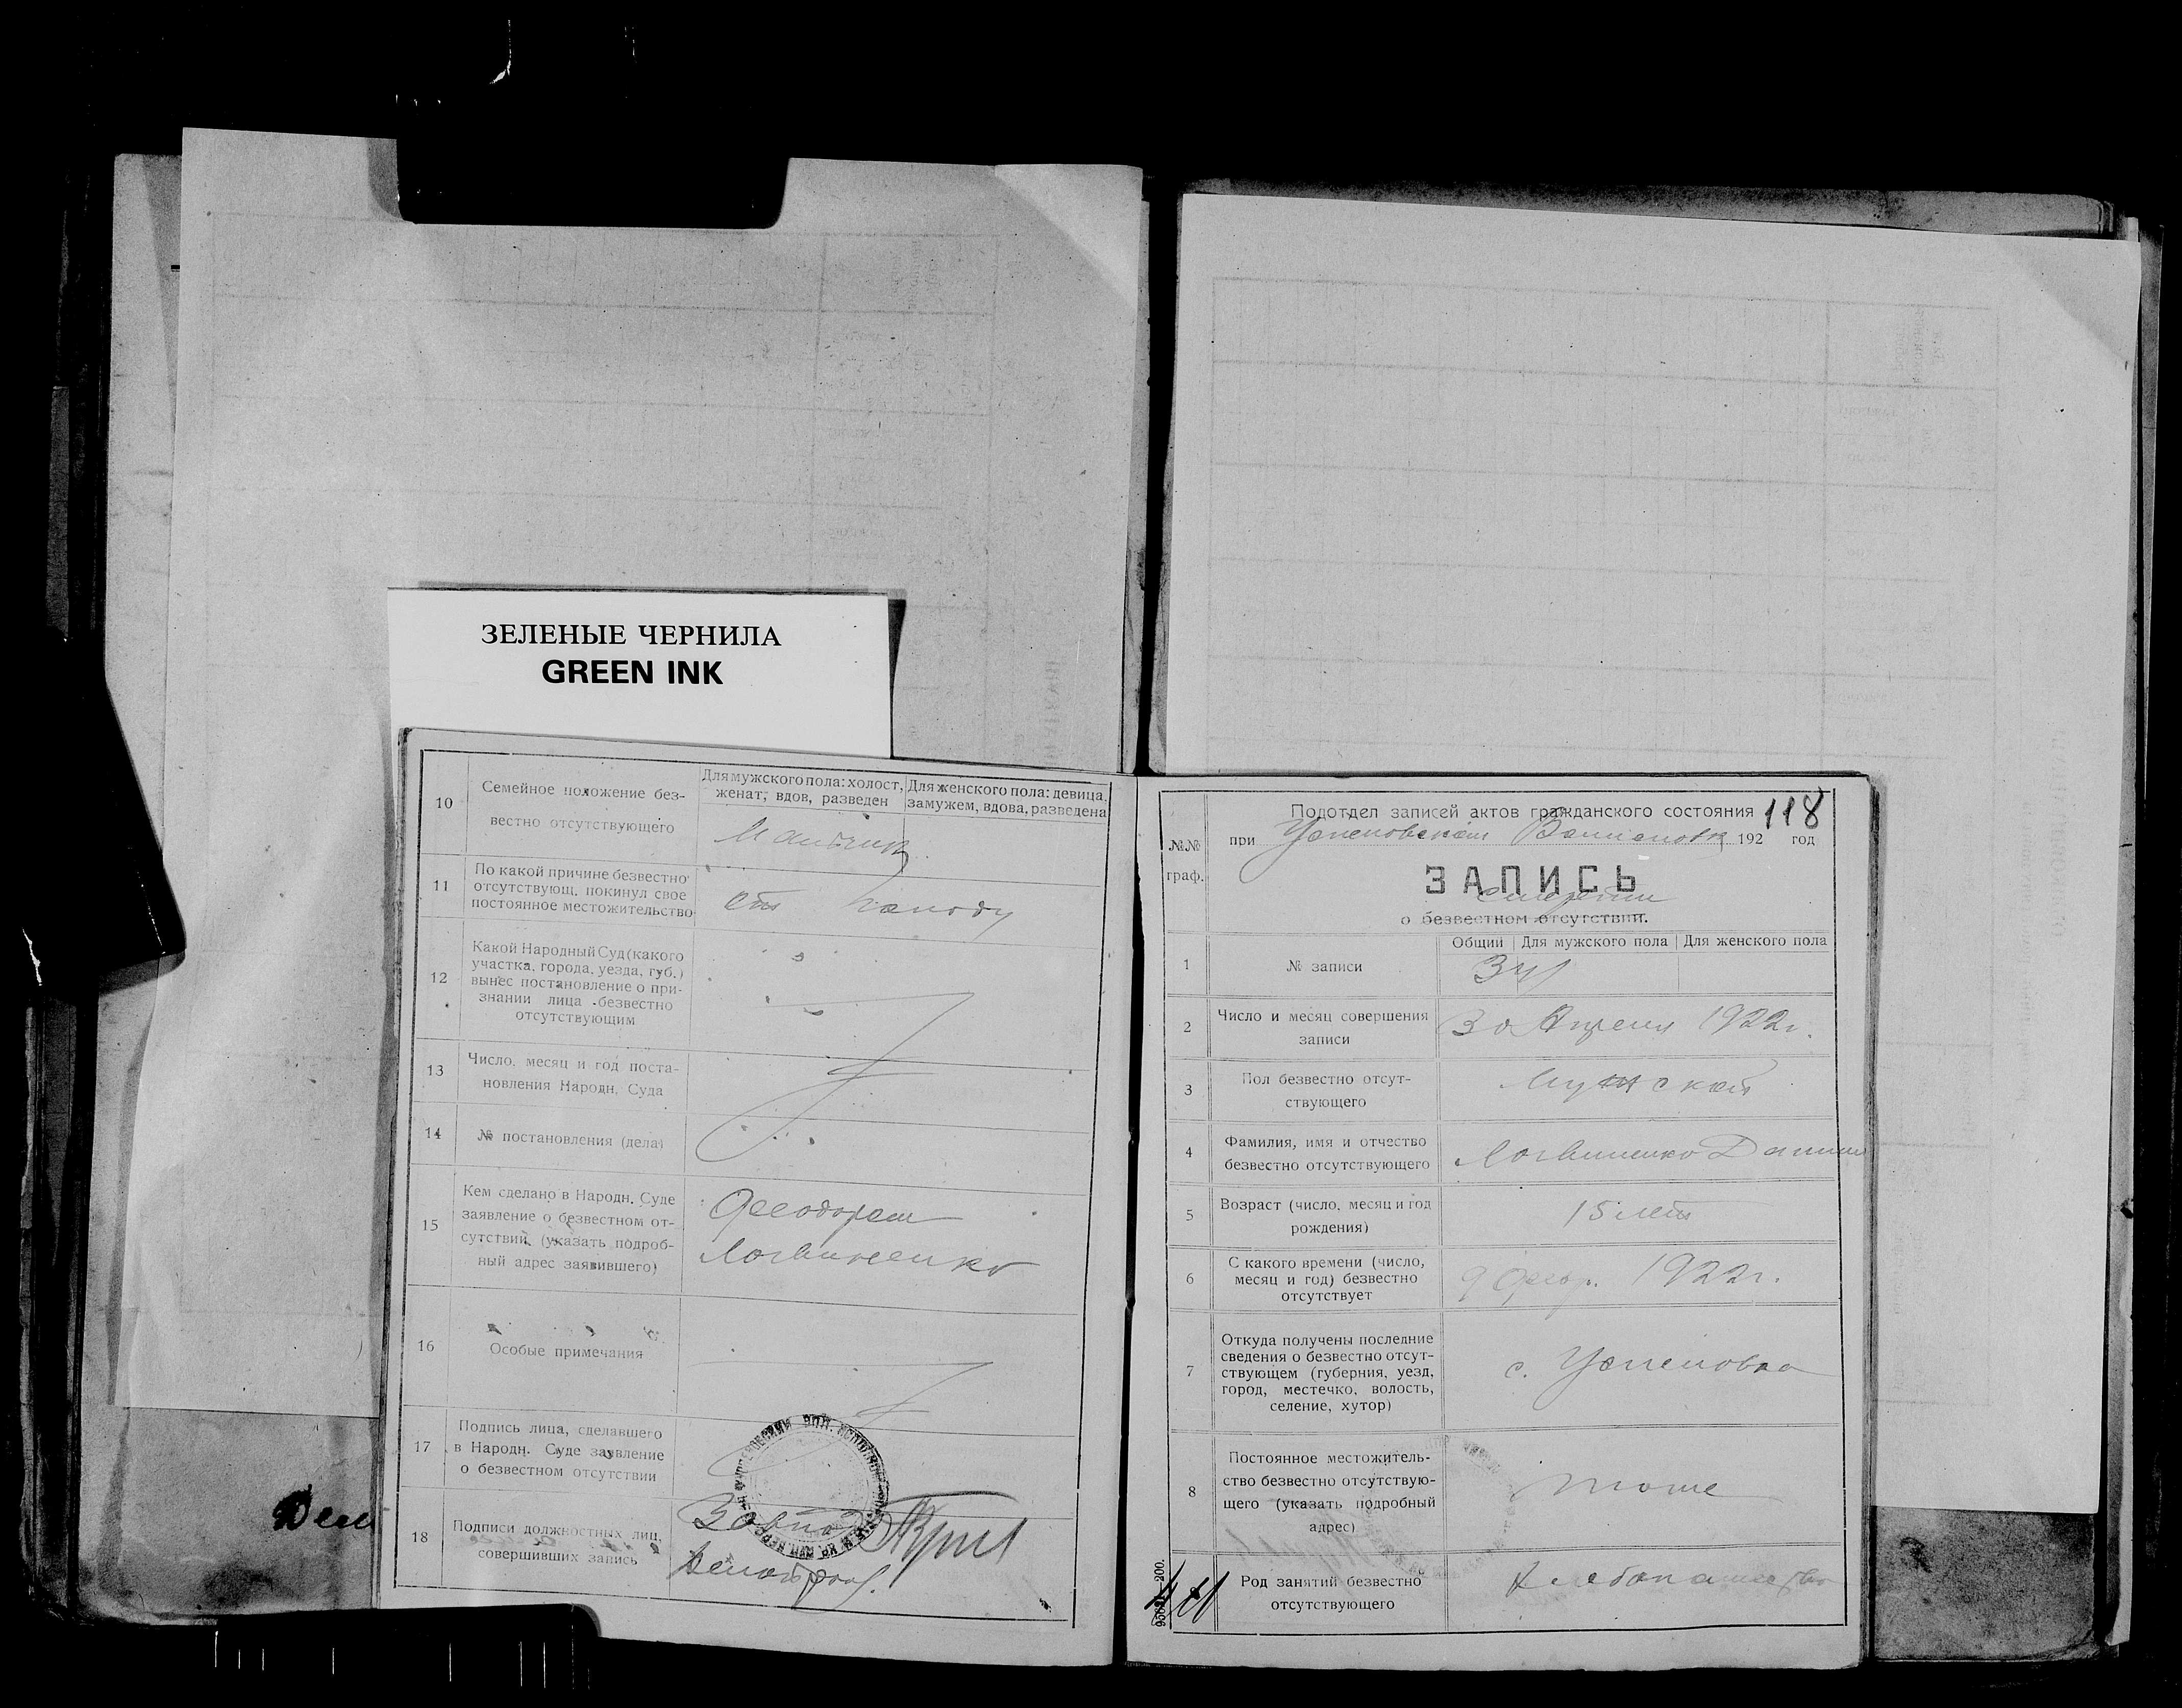 ЗЕЛЕНЫЕ ЧЕРНИЛА
GREEN INK
10
Семейное положение без-
вестно отсутствующего
Для мужского пола: холост,
женат, вдов, разведен
Для женского пола: девица,
замужем, вдова, разведена
Мальчик
11
По какой причине безвестно
отсутствующ. покинул свое
постоянное местожительство
от голоду
12
Какой Народный Суд (какого
участка, города, уезда, губ.)
вынес постановление о при-
знании лица безвестно
отсутствующим
13
Число, месяц и год поста-
новления Народн. Суда
14
№ постановления (дела)
15
Кем сделано в Народн. Суде
заявление о безвестном от-
сутствий, (указать подроб-
ный адрес заявившего)
Феодором
Логвиненко
16
Особые примечания
17
Подпись лица, сделавшего
в Народн. Суде заявление
о безвестном отсутствии
18
Подписи должностных лиц,
совершивших запись
Делопроиз.
118
Подотдел записей актов гражданского состояния
№№
граф.
при Успеновской 192 год
ЗАПИСЬ
смерти
о безвестном отсутствии.
Общий
Для мужского пола
Для женского пола
1
№ записи
341
2
Число и месяц совершения
записи
30 Апреля 1922г.
3
Пол безвестно отсут-
ствующего
Мужской
4
Фамилия, имя и отчество
безвестно отсутствующего
Логвиненко Даниил
5
Возраст (число, месяц и год
рождения)
15 лет
6
С какого времени (число,
месяц и год) безвестно
отсутствует
9 Февр. 1922г.
7
Откуда получены последние
сведения о безвестно отсут-
ствующем (губерния, уезд,
город, местечко, волость,
селение, хутор)
с. Успеновка
8
Постоянное местожитель-
ство безвестно отсутствую-
щего (указать подробный
адрес)
тоже
Род занятий безвестно
отсутствующего
Хлебопашество